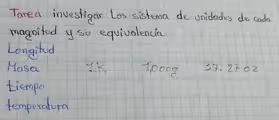 Tarea investigar los sistema de unidades de cada
magnitud y su equivalencia
Longitud
Masa 1K 1,000g 37.27 oz
tiempo
temperatura